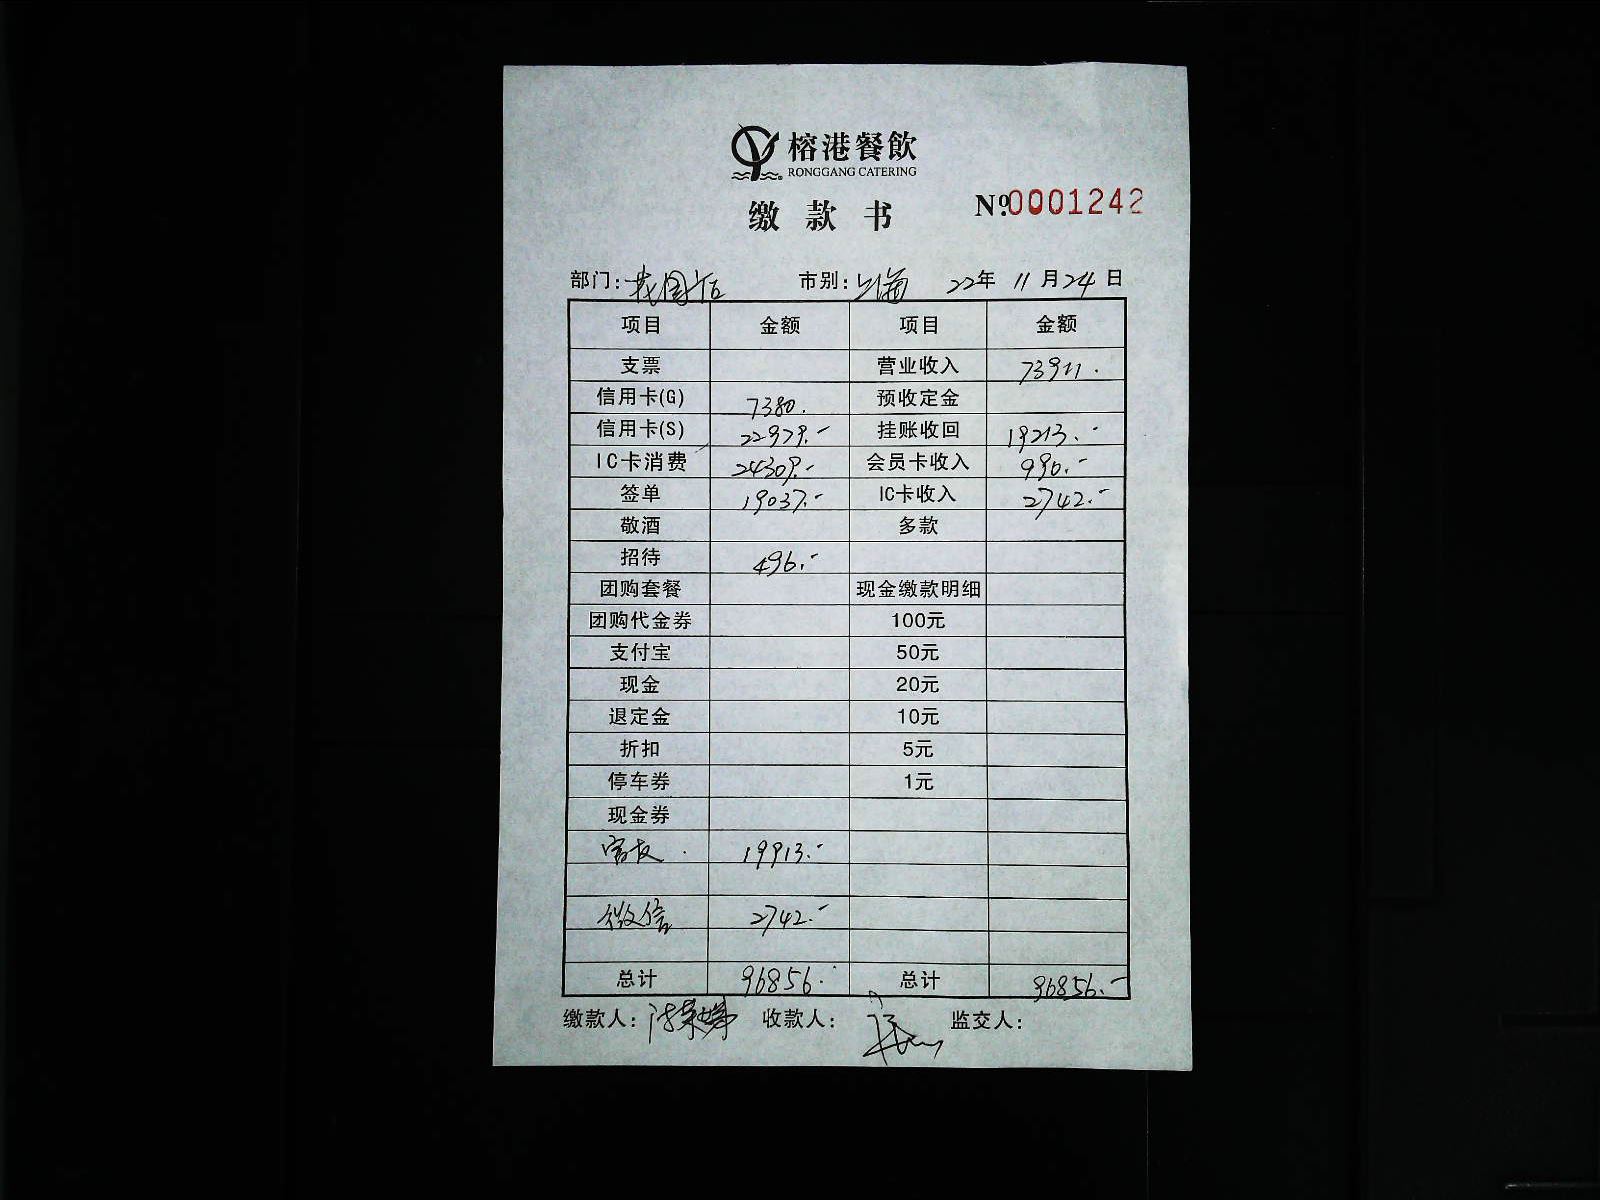 榕港餐飲
RONGGANG CATERING
缴款书 №0001242
部门: 市别: 上海 22年 11月24日
项目 金额 项目 金额
支票 营业收入 73911.
信用卡(G) 7380. 预收定金
信用卡(S) 22979.- 挂账收回 19213.-
IC卡消费 24309.- 会员卡收入 990.-
签单 19037.- IC卡收入 2742.-
敬酒 多款
招待 496.-
团购套餐 现金缴款明细
团购代金券 100元
支付宝 50元
现金 20元
退定金 10元
折扣 5元
停车券 1元
现金券
富友 19913.-
微信 2742.-
总计 96856. 总计 96856.-
缴款人: 收款人: 监交人: